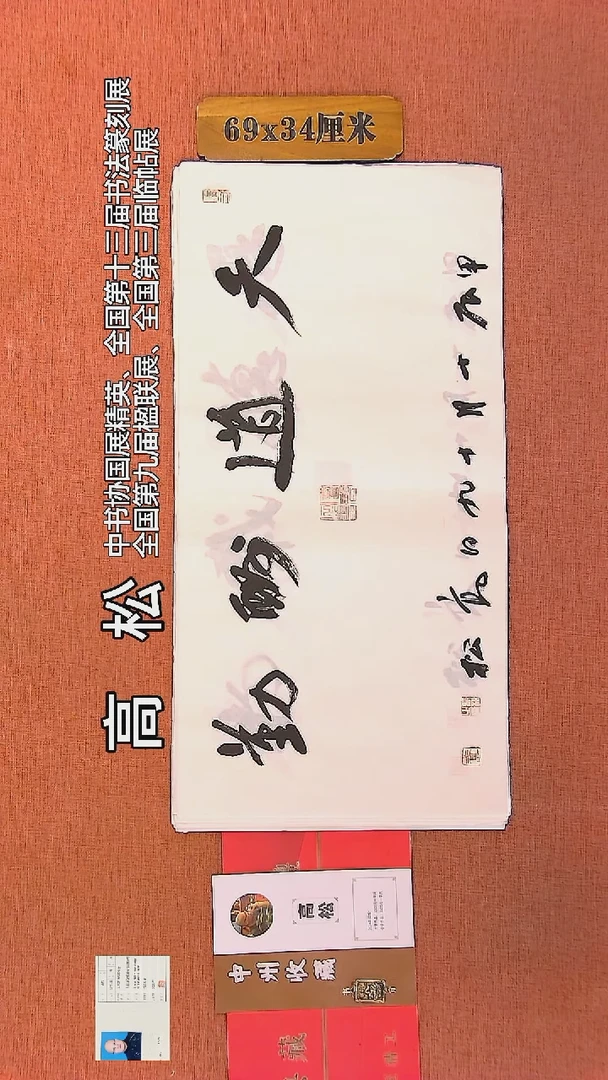 高 松
中书协国展精英、全国第十三届书法篆刻展
全国第九届楹联展、全国第三届临帖展
69x34厘米
天道酬勤
甲辰十月十九日高松
高松
中州收藏
藏